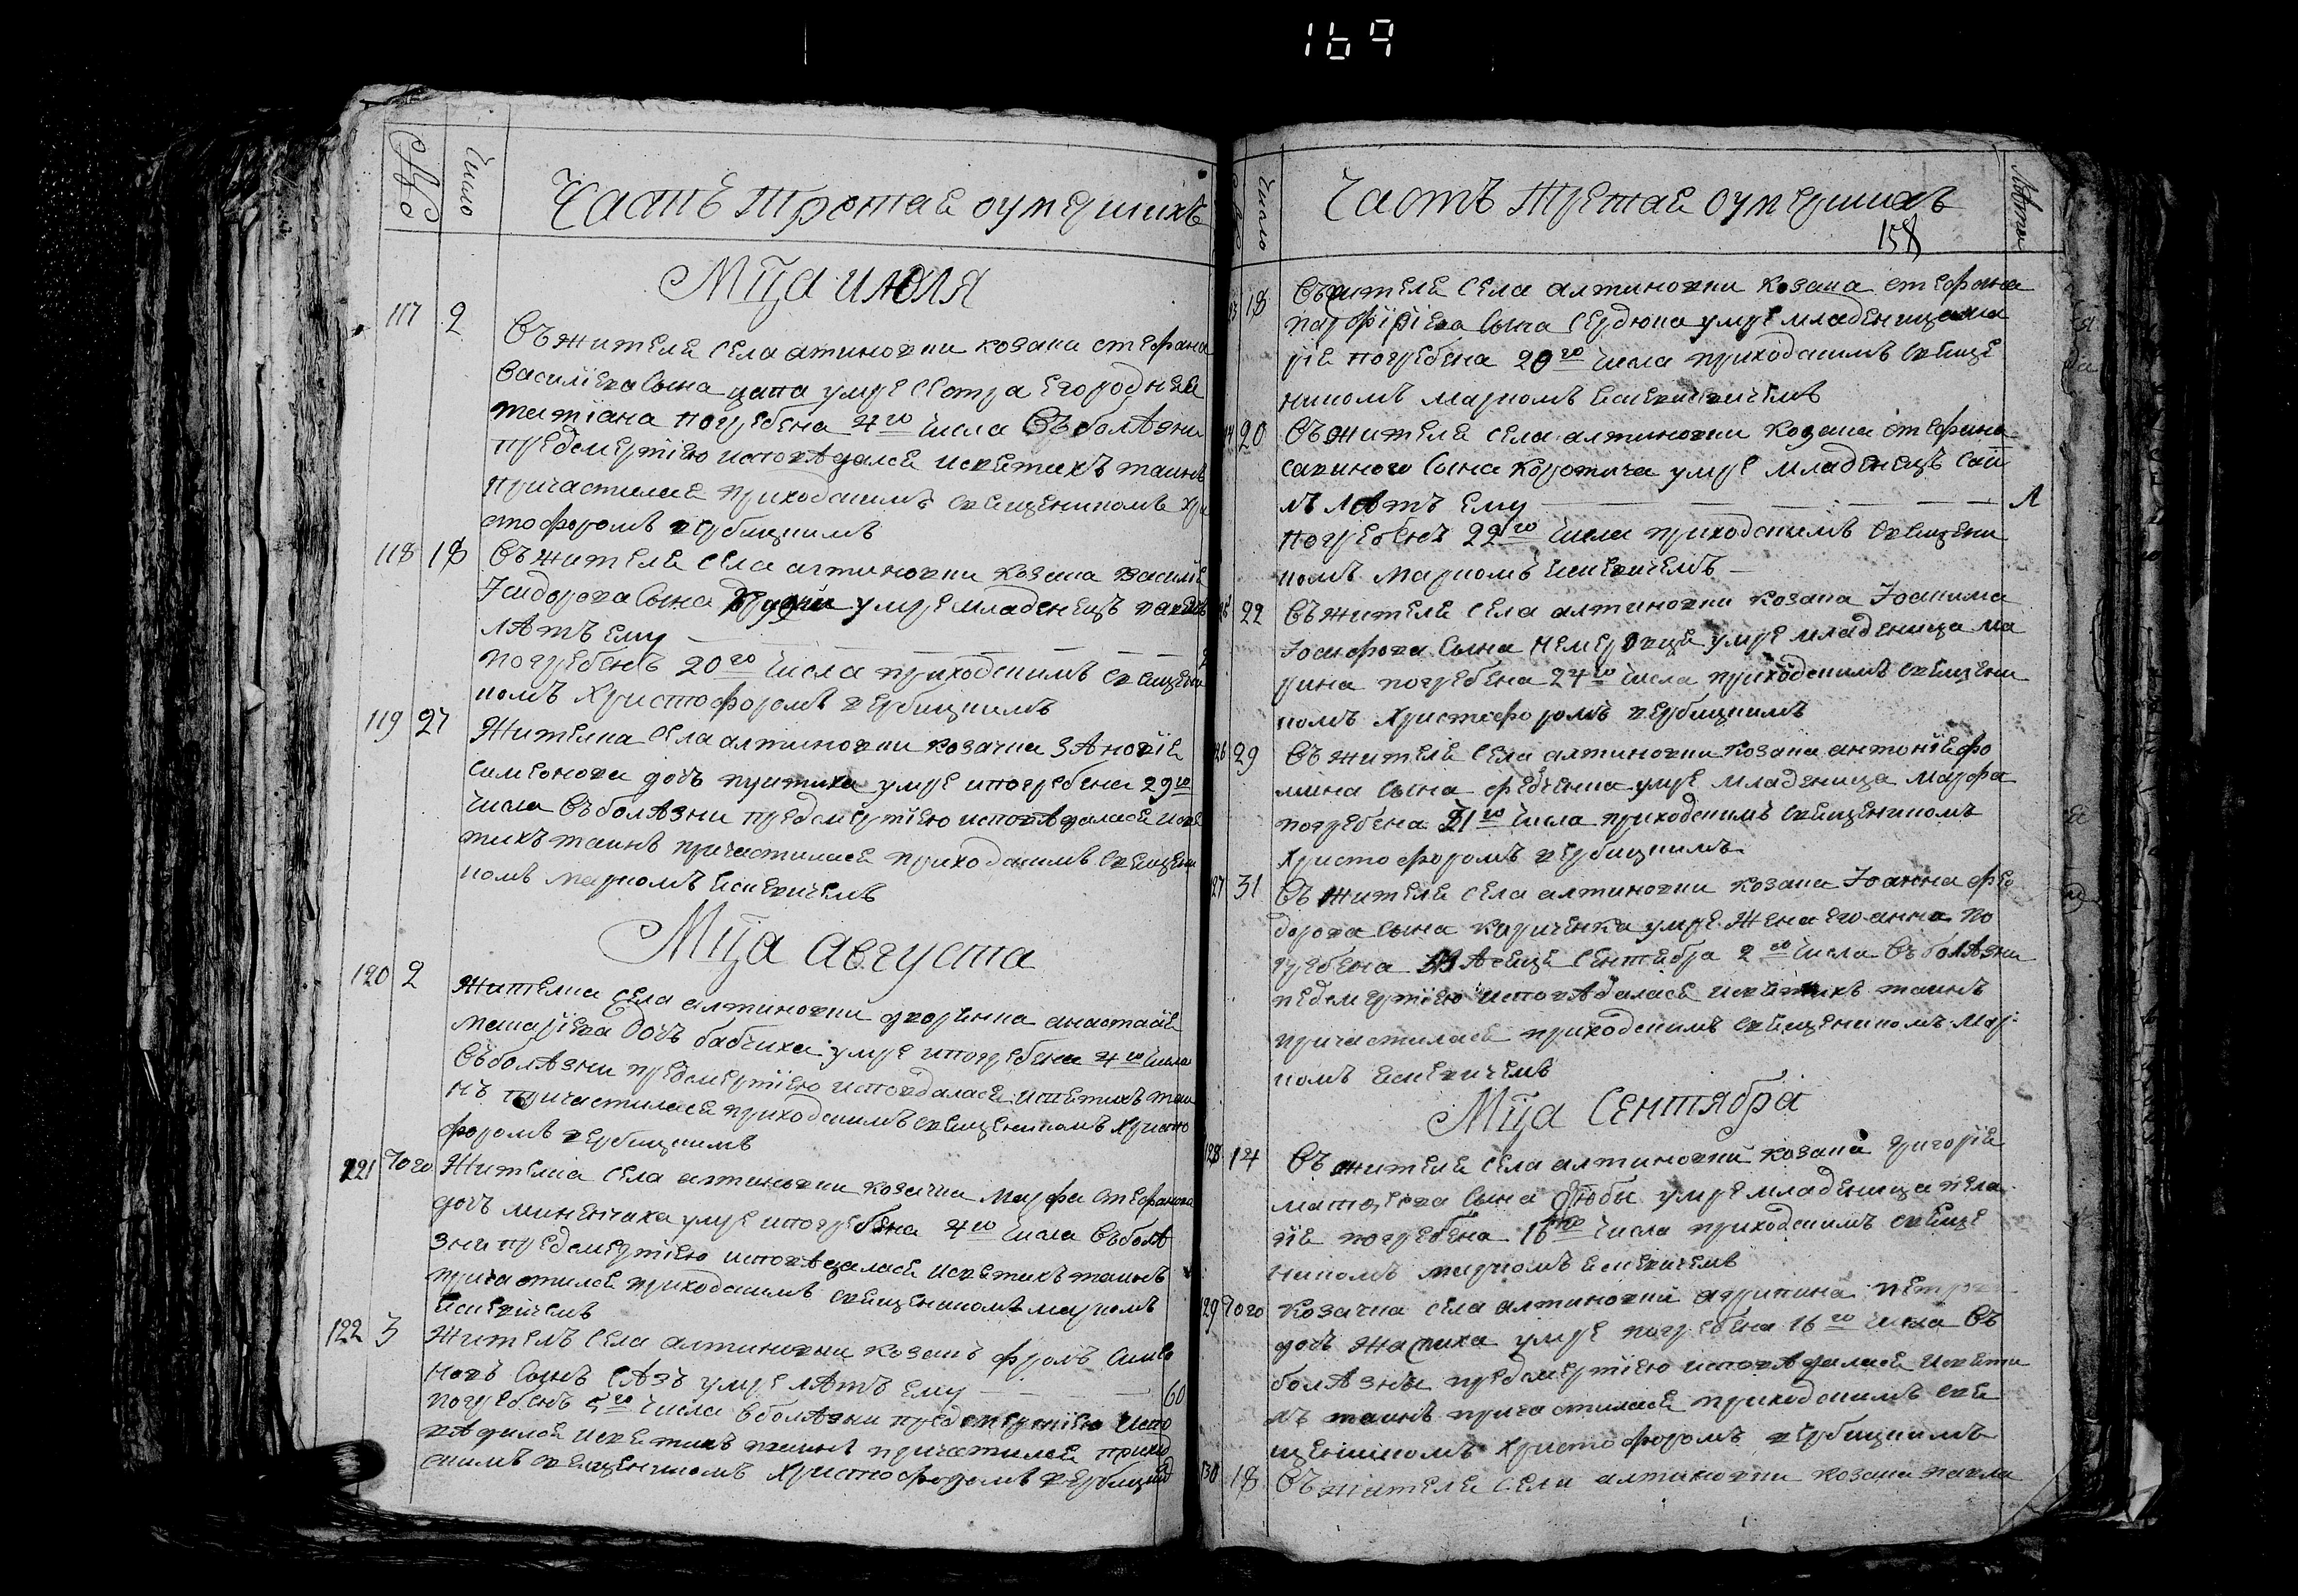 169
No
Число
Часть третая оумершихъ
Мца июля
117 2
Съ жителе села алтиновки козака стефана
Василиева сына цапа умре сестра его роднаѧ
татїана погребена 4го числа Съ болѣзни
предсмертїею исповѣдалсе исвѧтихъ таинъ
причастиласе приходскимъ свещеникомъ хри
стофоромъ вербицкимъ
118 18 Съ жителе села алтиновки козака василїе
Ісидорова сына умре младенецъ
лѣтъ ему
погребенъ 20го числа приходскимъ свещени
комъ Христофоромъ вербицкимъ
119 27 Жителка села алтиновки козачка зѣновїе
симеонова дочъ притика умре и погребена 29го
числа Съ болѣзни предсмертїею исповѣдаласе исвѧ
тихъ таинъ причастиласе приходскимъ свещени
комъ маркомъ
Мца августа
120 2 Жителка села алтиновки дворенка анастасїе
дочъ бабчиха умре и погребена 4го числа
Съ болѣзни предсмертїею исповдаласе таи
нъ причастиласе приходскимъ свещеникомъ христо
форомъ вербицкимъ
121 Того Жителка села алтиновки козачка марфа стефанова
дочъ умре и погребена 4го числа Съ болѣ
зни предсмертїею исповѣдаласе исвѧтихъ таинъ
причастилсе приходскимъ свещеникомъ маркомъ
122 3 Жителъ села алтиновки козакъ фролъ симо
новъ сынъ умре лѣтъ ему 60
погребенъ 5го числа в болѣзни предсмертїею испо
вѣдалсѧ исвѧтихъ таинъ причастилсѧ прихо
скимъ свещеникомъ Христофоромъ вербицки
Число
Часть третаѧ оумершихъ
158
18 Съ жителе села алтиновки козака стефана
парфїрїева сына сердюка умре младеница ма
рїе погребена 20го числа приходскимъ свѧще
никомъ маркомъ
20 Съ жителе села алтиновки козака стефана
савиного сына коротича умре младенецъ
лѣтъ ему
погребенъ 22го числа приходскимъ свѧщени
комъ маркомъ
22 Съ жителе села алтиновки козака Іоакима
Іосифова сына умре младеница ма
рина погребена 24го числа приходскимъ свѧщени
комъ Христофоромъ вербицкимъ
26 29 Съ жителе села алтиновки козака антонїе фо
мина сына федченка умре младеница марфа
погребена 31го числа приходскимъ свѧщеникомъ
Христофоромъ вербицкимъ
27 31 Съ жителе села алтиновки козака Іоанна фео
дорова сына кириченка умре жена его анна по
гребена сентебра 2го числа Съ болѣзни
педсмертїею исповѣдаласе исвѧтихъ таинъ
причастиласе приходскимъ свѧщеникомъ мар
комъ
Мца Сентября
128 14 Съ жителе села алтиновки козака григорїе
сына умре младеница пела
гїе погребена 16го числа приходскимъ свѧще
никомъ маркомъ
129 Того Козачка села алтиновки агрипина
дочъ умре погребена 16го числа Съ
болѣзны предсмертїею исповѣдаласе исвѧти
хъ таинъ причастиласе приходскимъ свѧ
щеникомъ Христофоромъ вербицкимъ
130 18 Съ жителе села алтиновки козака павла